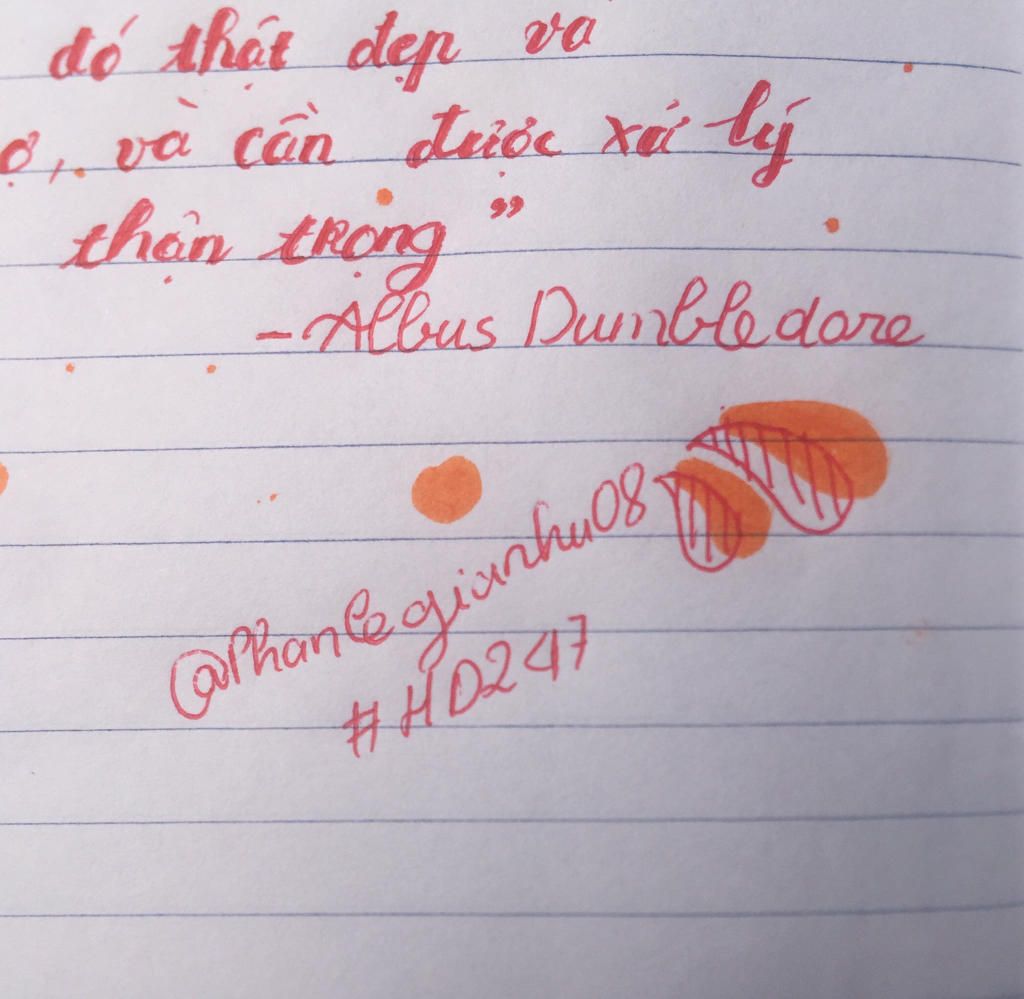 đó thật đẹp va
ợ, và cần được xử lý
thận trọng”
- Albus Dumbledore
@phanlegianhu08
#HD247